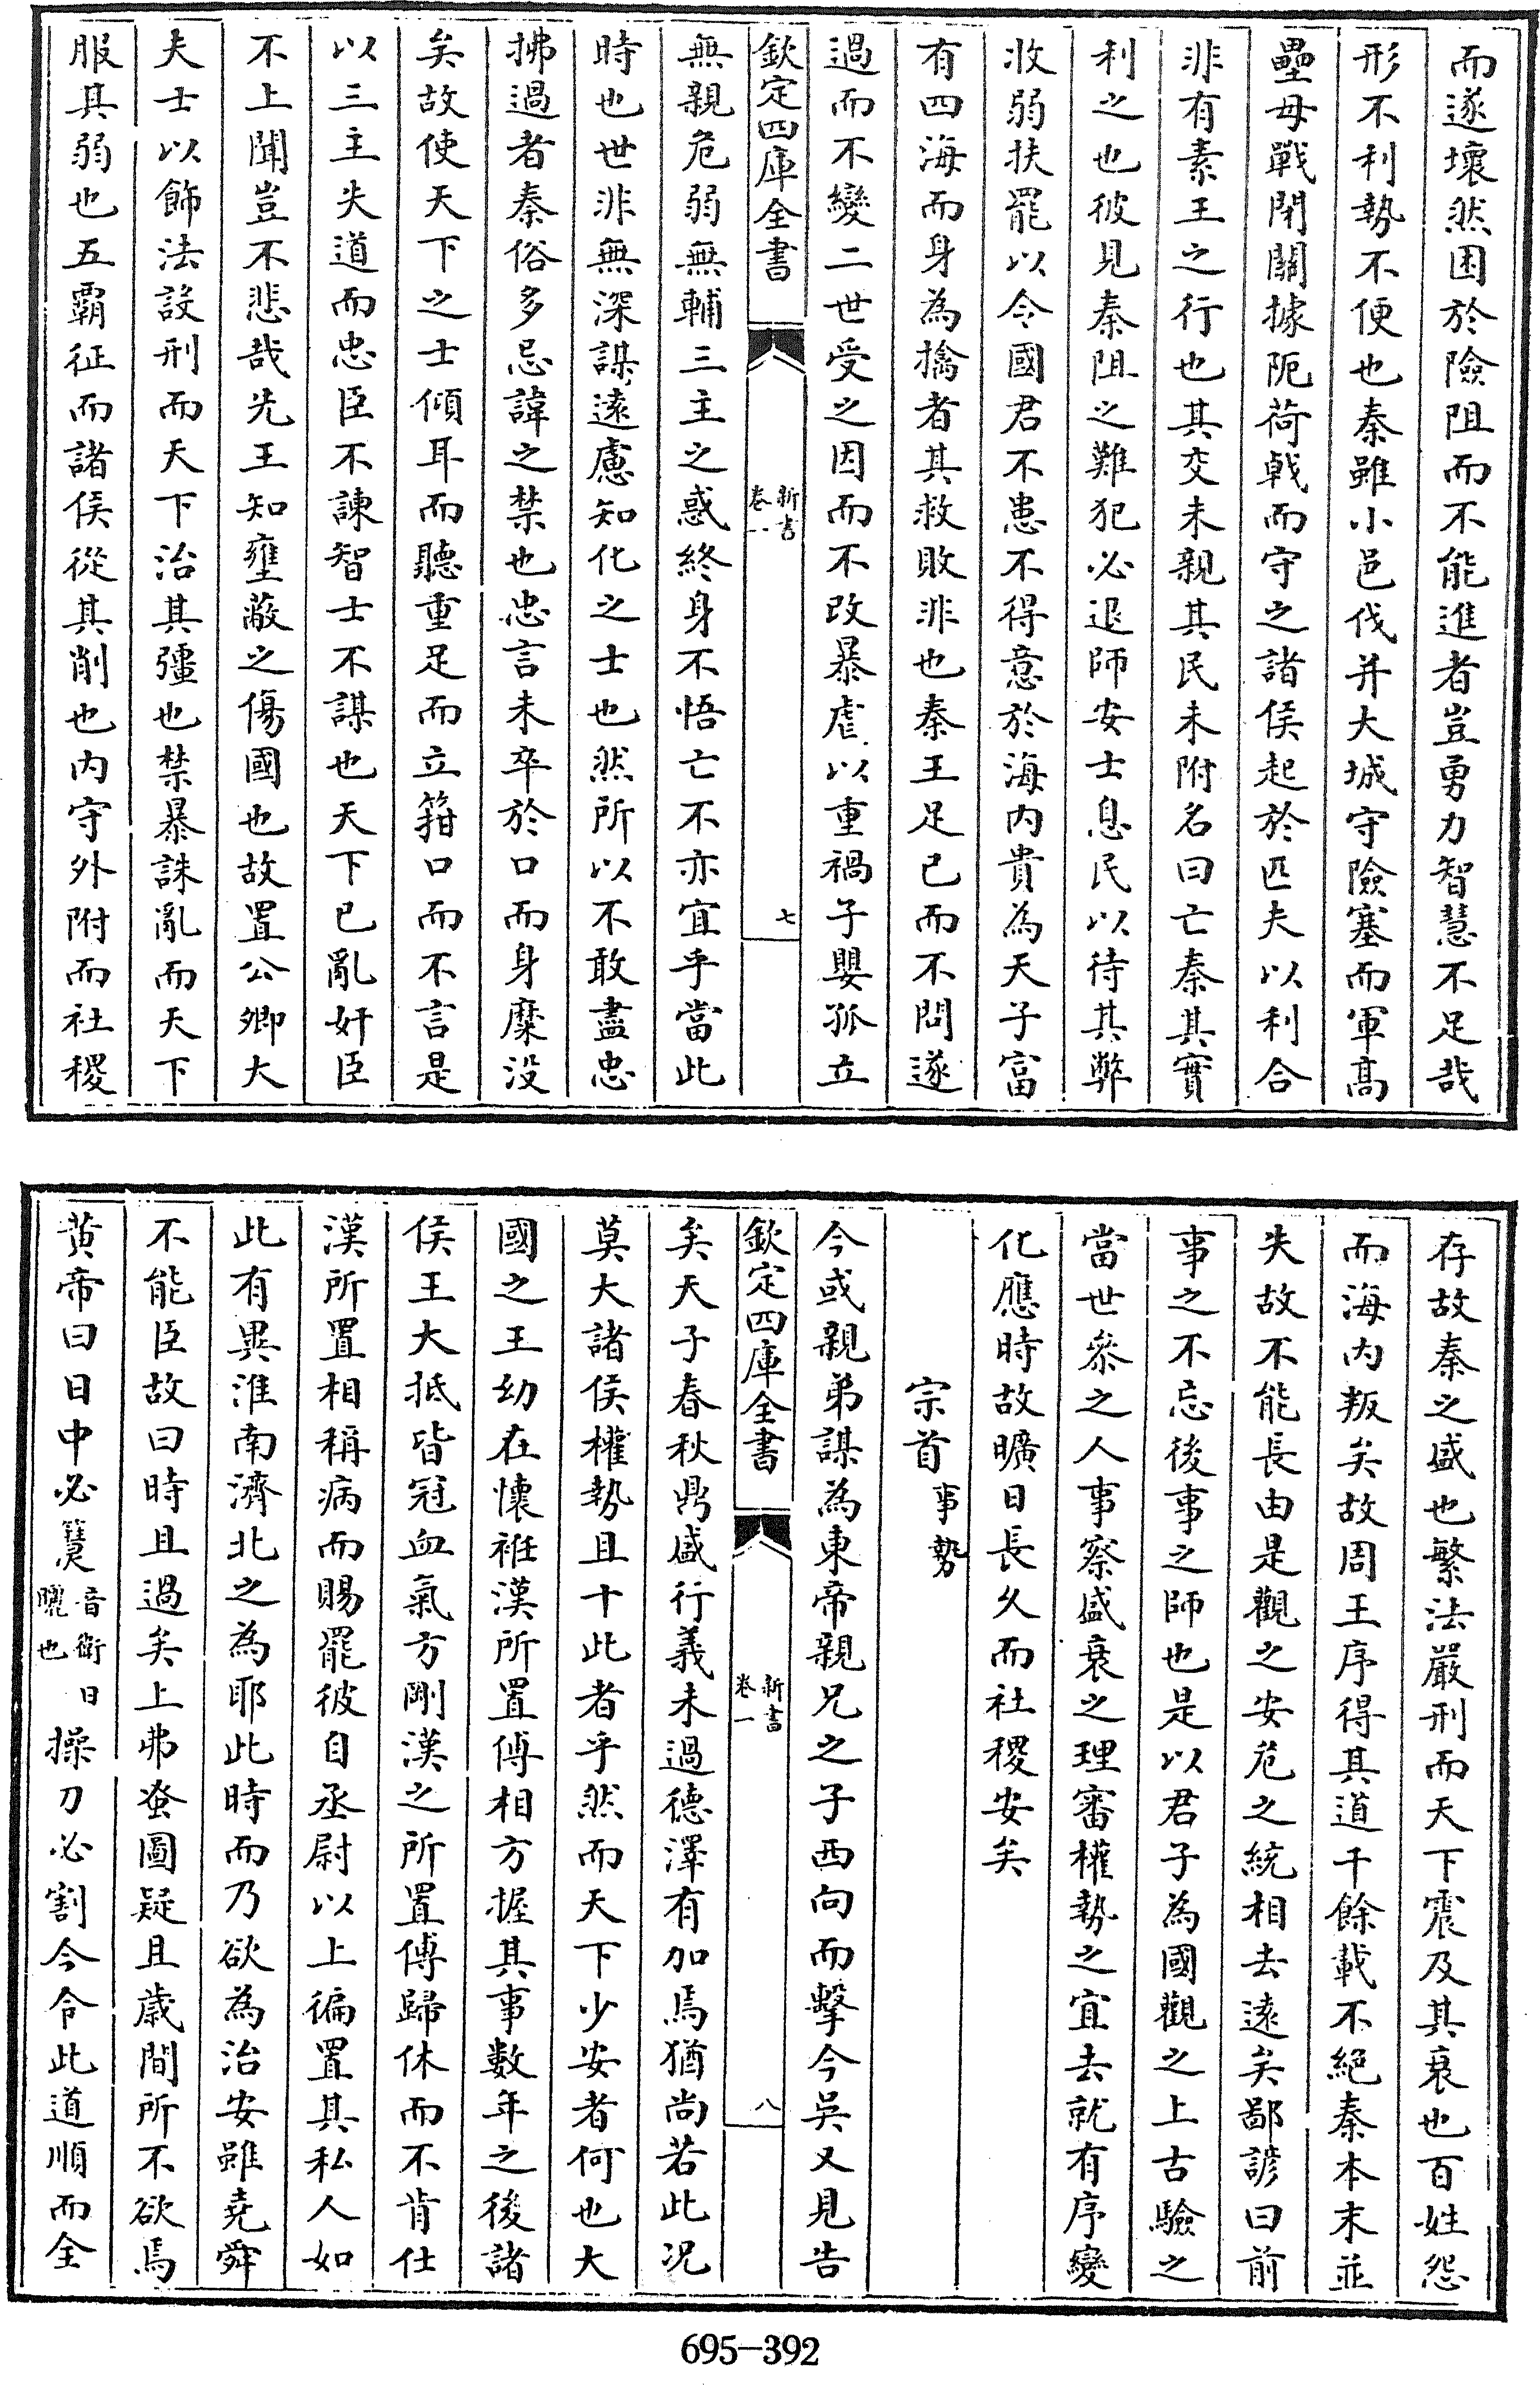 而遂壞然困於險阻而不能進者豈勇力智慧不足哉
形不利勢不便也秦雖小邑伐并大城守險塞而軍高
壘毋戰閉關據阨荷戟而守之諸侯起於匹夫以利合
非有素王之行也其交未親其民未附名曰亡秦其實
利之也彼見秦阻之難犯必退師安士息民以待其弊
收弱扶罷以令國君不患不得意於海内貴為天子富
有四海而身為擒者其救敗非也秦王足已而不問遂
過而不變二世受之因而不改暴虐以重禍子嬰孤立
欽定四庫全書
新書
卷一
七
無親危弱無輔三主之惑終身不悟亡不亦宜乎當此
時也世非無深謀遠慮知化之士也然所以不敢盡忠
拂過者秦俗多忌諱之禁也忠言未卒於口而身糜没
矣故使天下之士傾耳而聽重足而立箝口而不言是
以三主失道而忠臣不諫智士不謀也天下已亂奸臣
不上聞豈不悲哉先王知壅蔽之傷國也故置公卿大
夫士以飾法設刑而天下治其彊也禁暴誅亂而天下
服其弱也五霸征而諸侯從其削也内守外附而社稷
存故秦之盛也繁法嚴刑而天下震及其衰也百姓怨
而海内叛矣故周王序得其道千餘載不絕秦本末並
失故不能長由是觀之安危之統相去遠矣鄙諺曰前
事之不忘後事之師也是以君子為國觀之上古驗之
當世叅之人事察盛衰之理審權勢之宜去就有序變
化應時故曠日長久而社稷安矣
宗首事勢
今或親弟謀為東帝親兄之子西向而擊今吳又見告
欽定四庫全書
新書
卷一
八
矣天子春秋鼎盛行義未過德澤有加焉猶尚若此况
莫大諸侯權勢且十此者乎然而天下少安者何也大
國之王幼在懷袵漢所置傅相方握其事數年之後諸
侯王大抵皆冠血氣方剛漢之所置傅歸休而不肯仕
漢所置相稱病而賜罷彼自丞尉以上徧置其私人如
此有異淮南濟北之為耶此時而乃欲為治安雖堯舜
不能臣故曰時且過矣上弗蚤圖疑且歲間所不欲焉
黄帝曰日中必䕸音衛日曬也操刀必割今令此道順而全
695-392